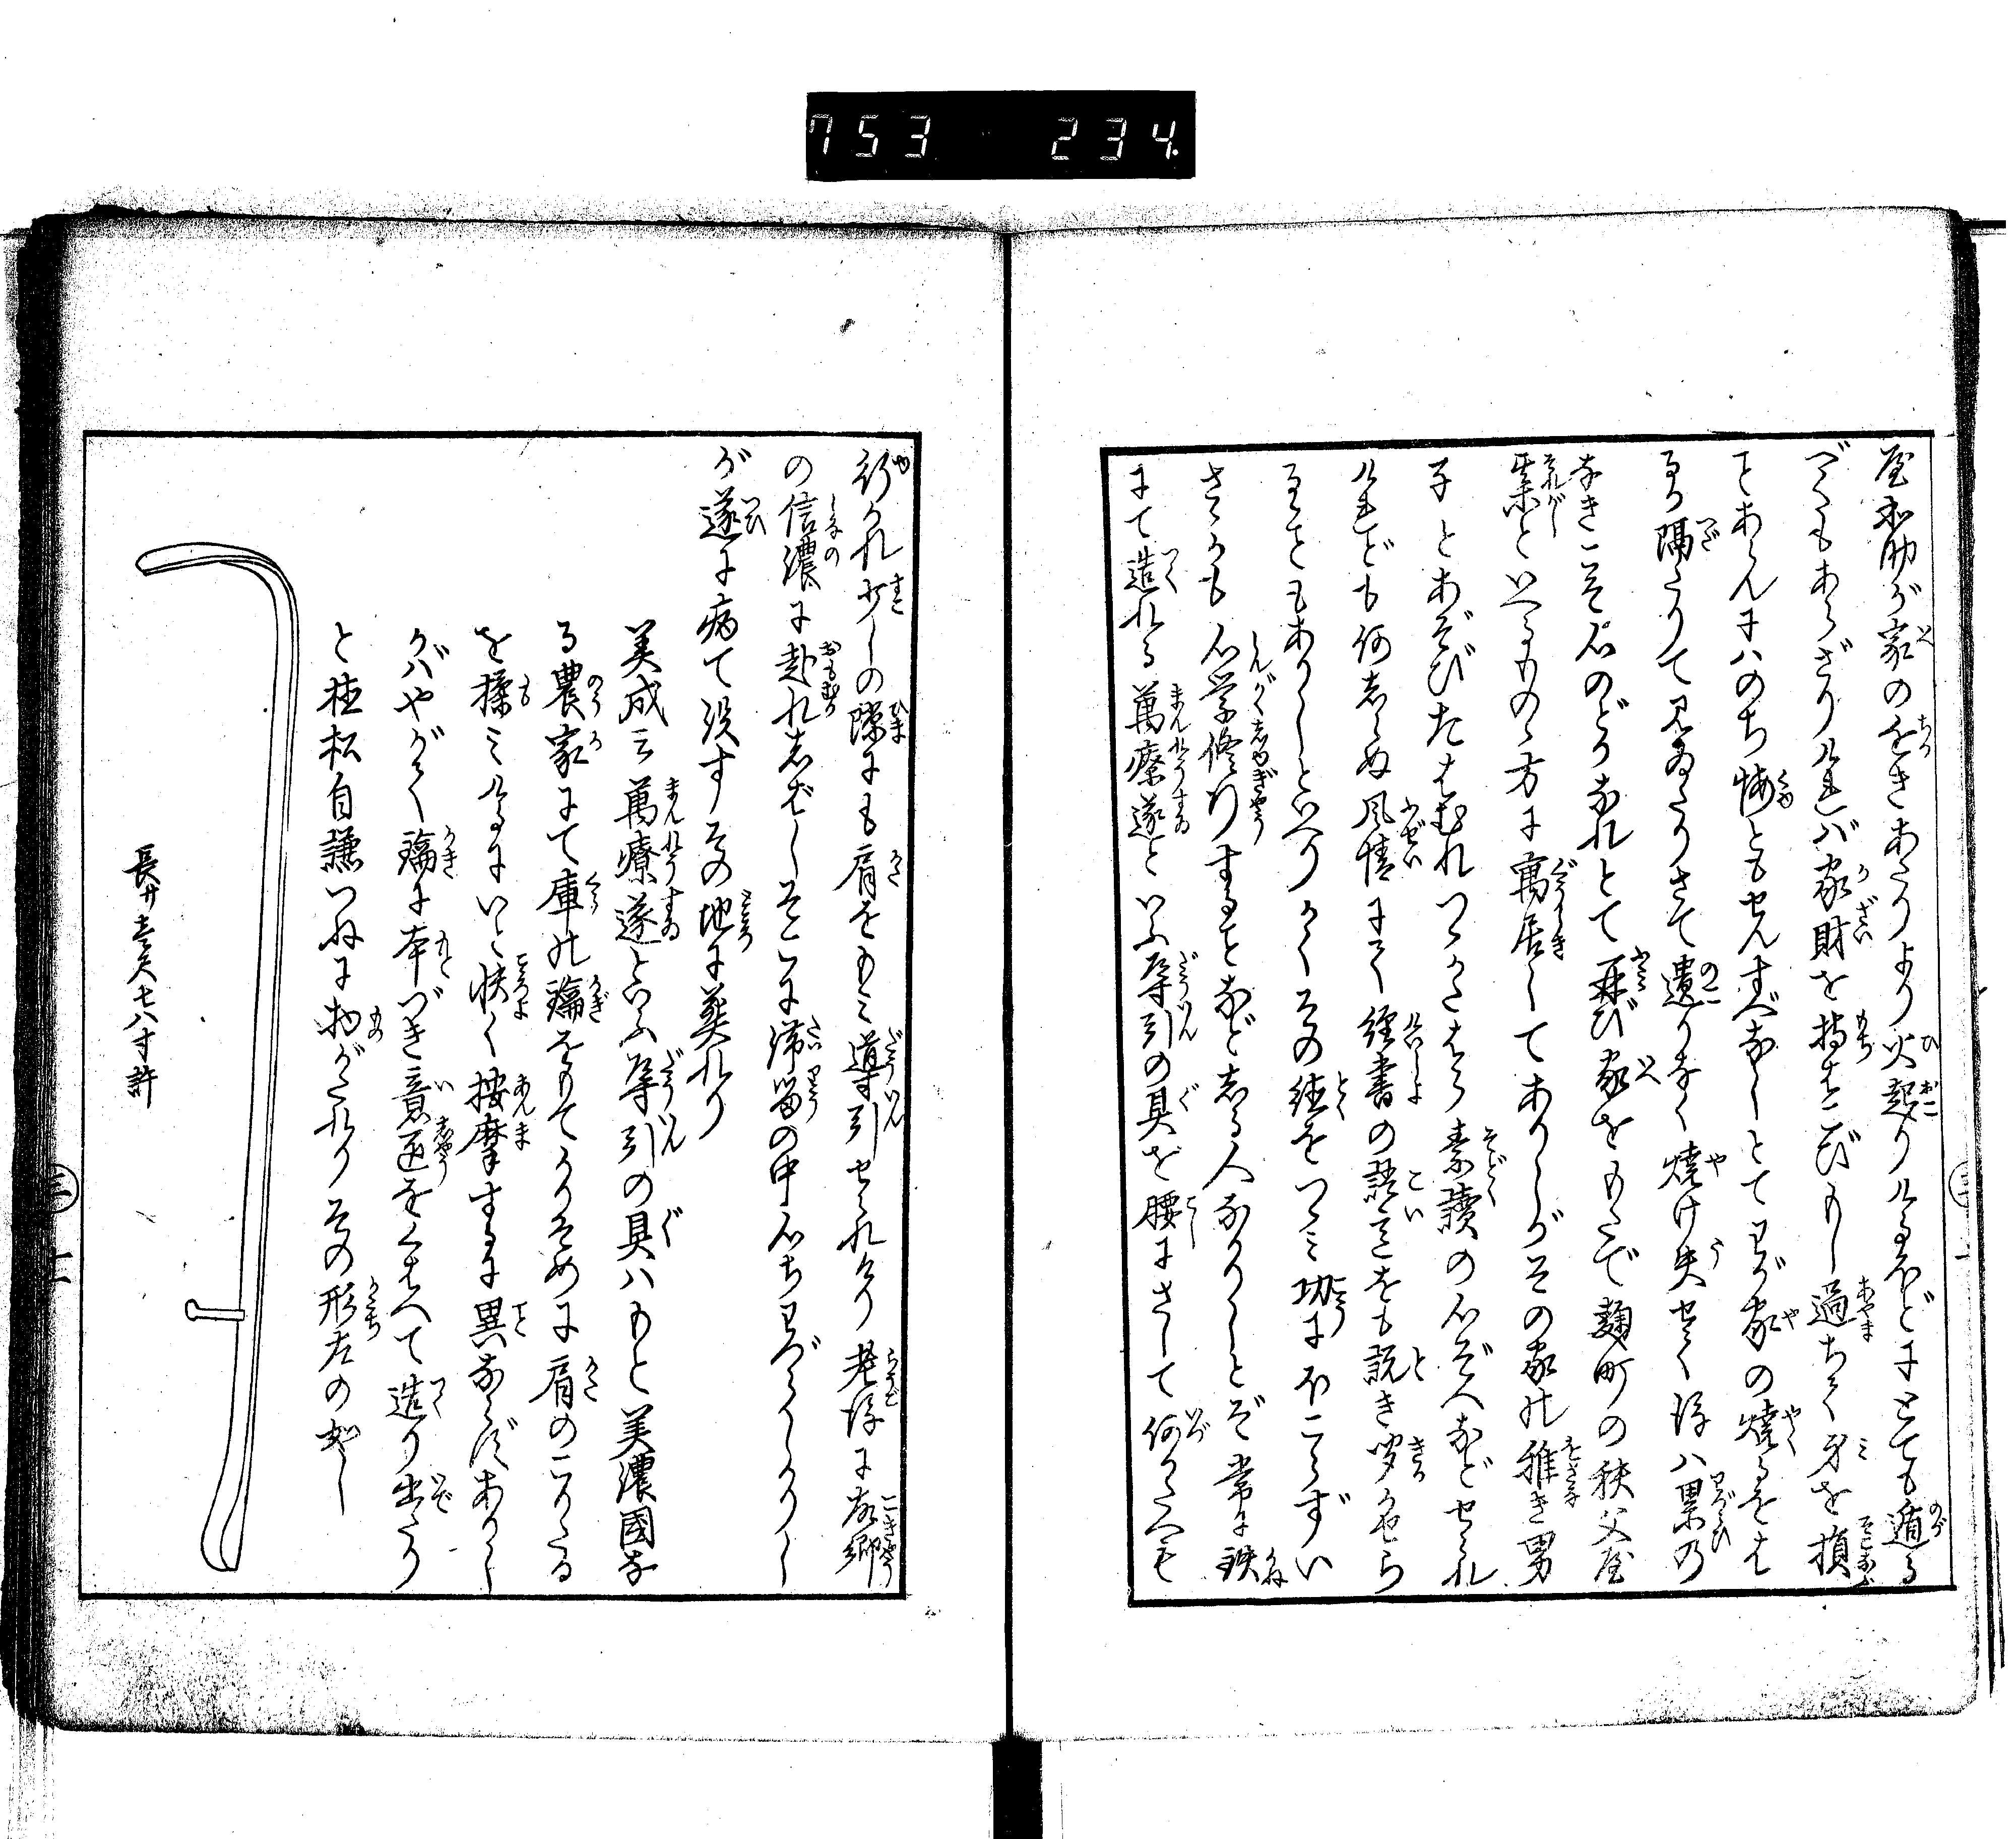 753 234
屋和助が家のちかきあたりより火起りけるほどにとても遁る
べくもあらざりければ家財を持はこびもし過ちて身を損
ことあらんにハのち悔ともせんすべなしとてわが家の燒るをは
るか隔たりて見ゐたりさて遺りなく燒け失せて後ハ累の
なきこそ心のどかなれとて再び家をもたで麹町の秩父屋
某といへるものゝ方に寓居してありしがその家の稚き男
子とあそびたはむれつゝかたはら素讀の心ぞへなどせられ
けれども何しらぬ風情にて經書の語意をも説き聞かせら
るゝこともありしといへりかくその徳をつゝミ功にほこらずい
さゝかも心学修行することなどしる人なかりしとぞ常に鉄
にて造れる萬療遂といふ導引の具を腰にさして何かたへも
行かれ少しの隙にも肩をもミ導引せられけり老後に故郷
の信濃に赴れしばしそこに滞留の中心ちわづらハしかりし
が遂に病て没すその地に葬れり
美成云萬療遂といふ導引の具ハもと美濃國な
る農家にて庫の鑰をもてかりそめに肩のこりたる
を揉ミけるにいと快く按摩するに異ならずありし
かバやがて鑰に本づき意匠をくはへて造り出たり
と植松自謙つねに物がたれりその形左の如し
長サ壱尺七八寸許